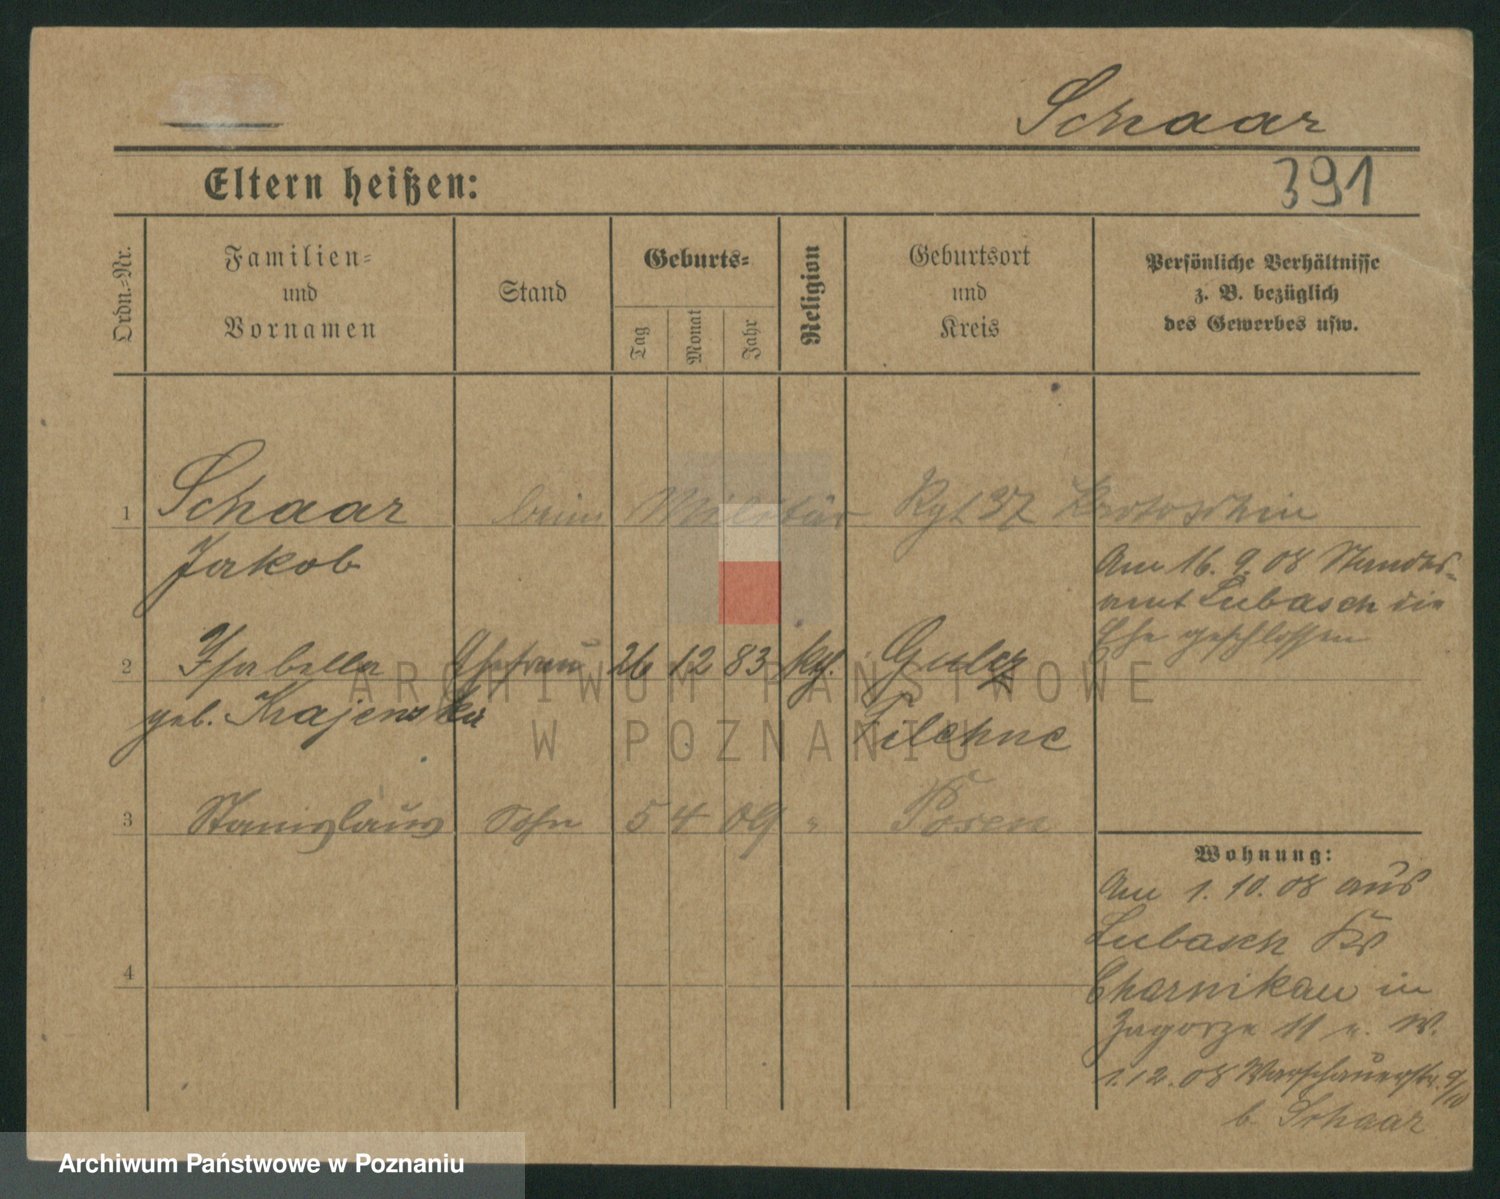 Schaar
Eltern heißen:
391
Ordn.-Nr.
Familien-
und
Vornamen
Stand
Geburts-
Tag
Monat
Jahr
Religion
Geburtsort
und
Kreis
Persönliche Verhältnisse
z. B. bezüglich
des Gewerbes usw.
1 Schaar beim Militär Rgt 37 Krotoschin
Jakob
Am 16. 9. 08 Standes-
amt Lubasch die
Ehe geschlossen
2 Isabella Ehefrau 26 12 83 kth. Gulcz
geb. Krajewska Filehne
3 Stanislaus Sohn 5 4 09 " Posen
Wohnung:
Am 1. 10. 08 aus
Lubasch Kr
Czarnikau in
Zagorze 11 u. W.
1.12.08 Warschauerstr. 9/10
b. Schaar
4
ARCHIWUM PAŃSTWOWE
W POZNANIU
Archiwum Państwowe w Poznaniu